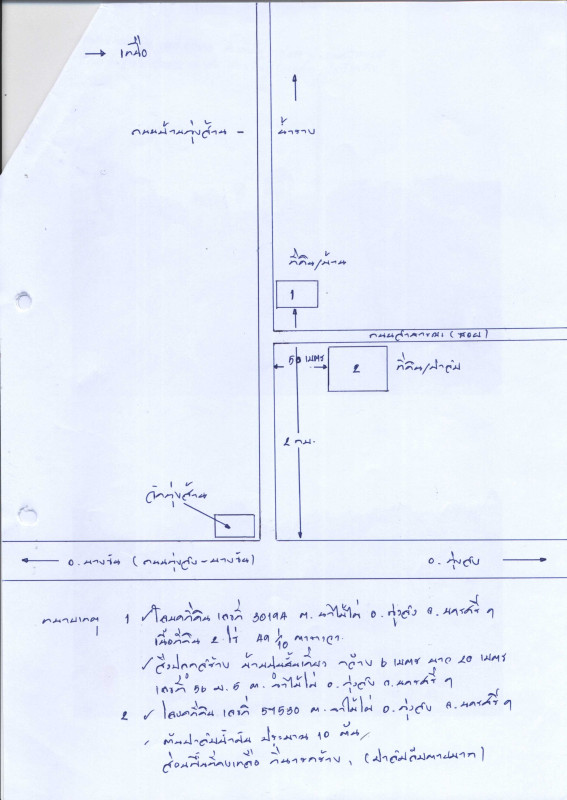 → เหนือ
ถนนบ้านทุ่งส้าน -
นาราง
ที่ดิน/บ้าน
1
ถนนสาธารณะ (ซอย)
50 เมตร
2
ที่ดิน/ปาล์ม
2 กม.
วัดทุ่งส้าน
อ. บางขัน (ถนนทุ่งสง-บางขัน)
อ. ทุ่งสง
หมายเหตุ 1 ✓ โฉนดที่ดิน เลขที่ 30194 ต. นาไม้ไผ่ อ. ทุ่งสง จ. นครศรีฯ
เนื้อที่ดิน 2 ไร่ 49 /10 ตารางวา.
✓ สิ่งปลูกสร้าง บ้านปูนชั้นเดียว กว้าง 6 เมตร ยาว 20 เมตร
เลขที่ 56 ม. 5 ต. นาไม้ไผ่ อ. ทุ่งสง จ. นครศรีฯ
2 ✓ โฉนดที่ดิน เลขที่ 54530 ต. นาไม้ไผ่ อ. ทุ่งสง จ. นครศรีฯ
, ต้นปาล์มน้ำมัน ประมาณ 10 ต้น,
ส่วนพื้นที่คงเหลือ ที่นารกร้าง, (ปาล์มล้มตายมาก)